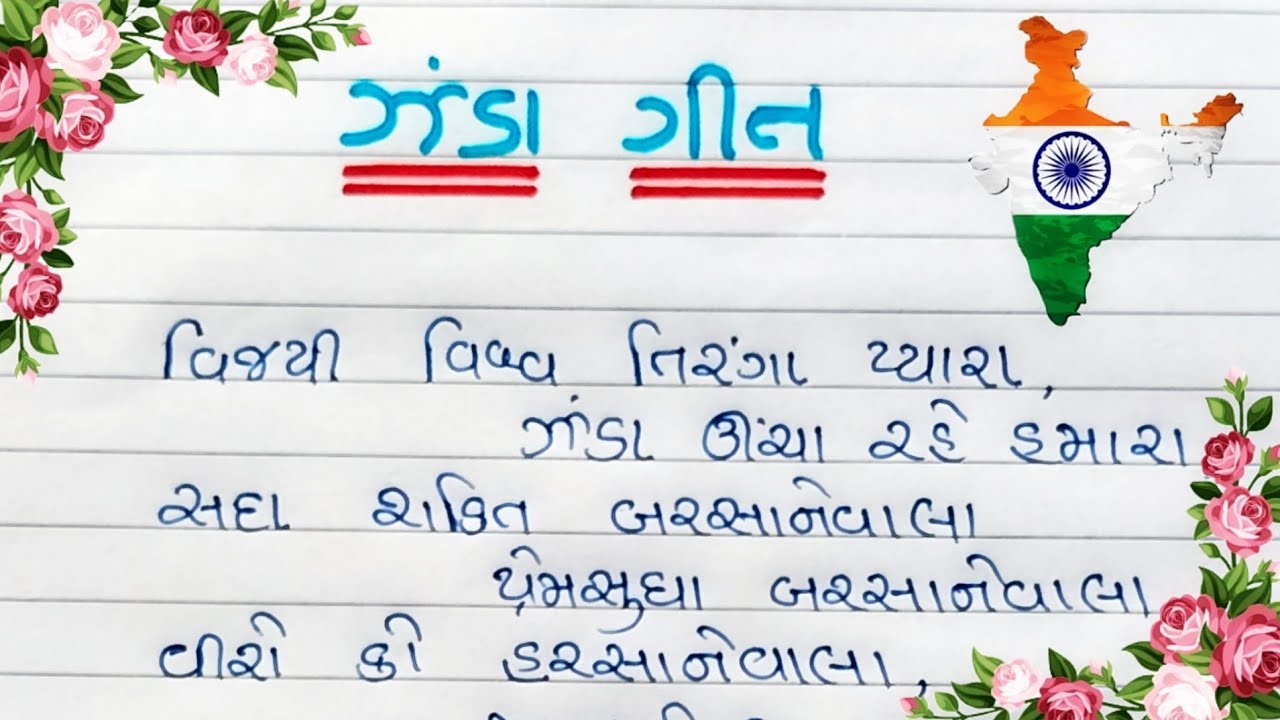 ઝંડા ગીત
વિજયી વિશ્વ તિરંગા પ્યારા,
ઝંડા ઊંચા રહે હમારા
સદા શકિત બરસાનેવાલા
પ્રેમસુધા બરસાનેવાલા
વીરો કો હરસાનેવાલા,